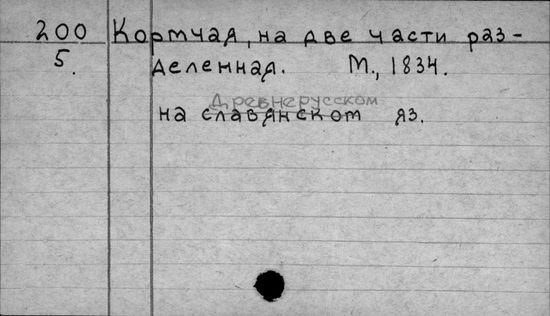 200 Кормчая, на две части раз-
5. деленная. М., 1834.
Древнерусском
на славянском яз.